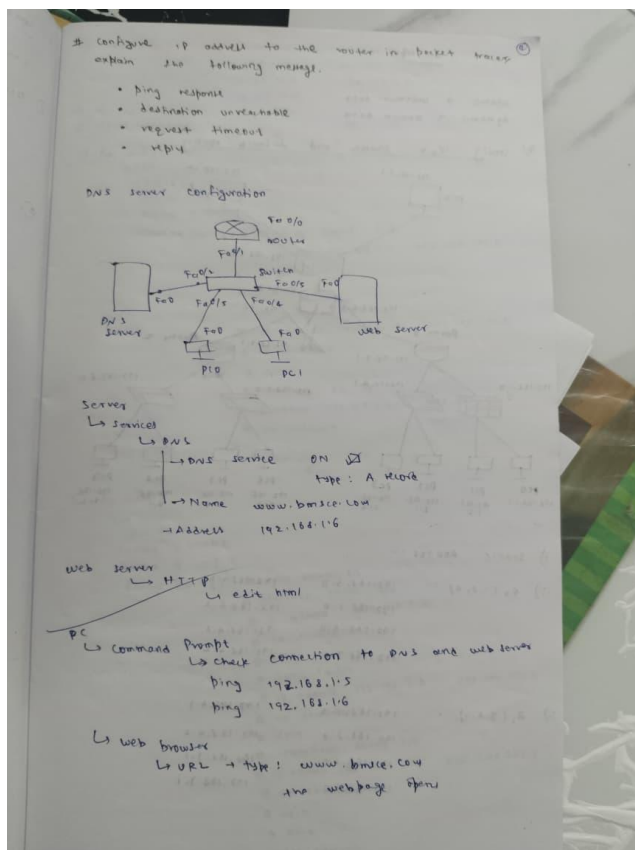 # Configure IP address to the router in packet tracer
explain the following message.
• ping response
• destination unreachable
• request timeout
• reply
DNS server configuration
Fa 0/0
router
Fa0/1
Fa0/2
Switch
Fa0/5
Fa0
Fa0
Fa0/3
Fa0/4
DNS
server
Fa0
Fa0
web server
PC0
PC1
Server
↳ Services
↳ DNS
→ DNS service ON ☑
type : A record
→ Name www.bmsce.com
→ Address 192.168.1.6
web server
↳ HTTP
↳ edit html
PC
↳ Command Prompt
↳ check connection to DNS and web server
ping 192.168.1.5
ping 192.168.1.6
↳ web browser
↳ URL → type : www.bmsce.com
the webpage opens